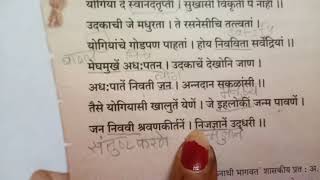 योगिया दे स्वानंदतृप्ती । सुखासी विकृती पैं नाहीं ॥
उदकाची जे मधुरता । ते रसनेसीचि तत्त्वतां ।
योगियांचें गोडपण पाहतां । होय निवविता सर्वेंद्रियां ॥
मेघमुखें अधःपतन । उदकाचें देखोनि जाण ।
अधःपातें निवती जन । अन्नदान सकळांसी ॥
तैसें योगियासी खालुतें येणें । जे इहलोकीं जन्म पावणें ।
जन निववी श्रवणकीर्तनें । निजज्ञानें उद्धरी ॥
संतुष्ट करणे
नाथी भागवत शासकीय प्रत : अ.